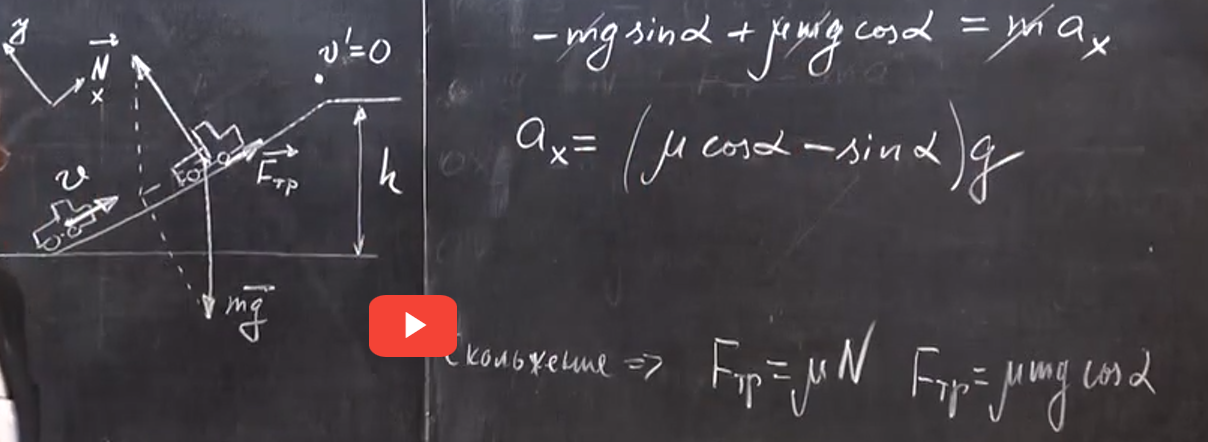 y
N⃗
x
v' = 0
v
F⃗тр
h
mg⃗
-mg sinα + μmg cosα = m aₓ
aₓ = (μ cosα - sinα)g
Скольжение => Fтр = μN Fтр = μmg cosα